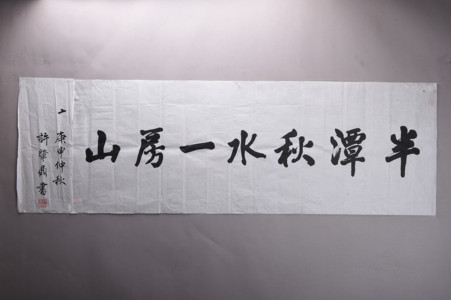 半潭秋水一房山
庚申仲秋
許[?]書